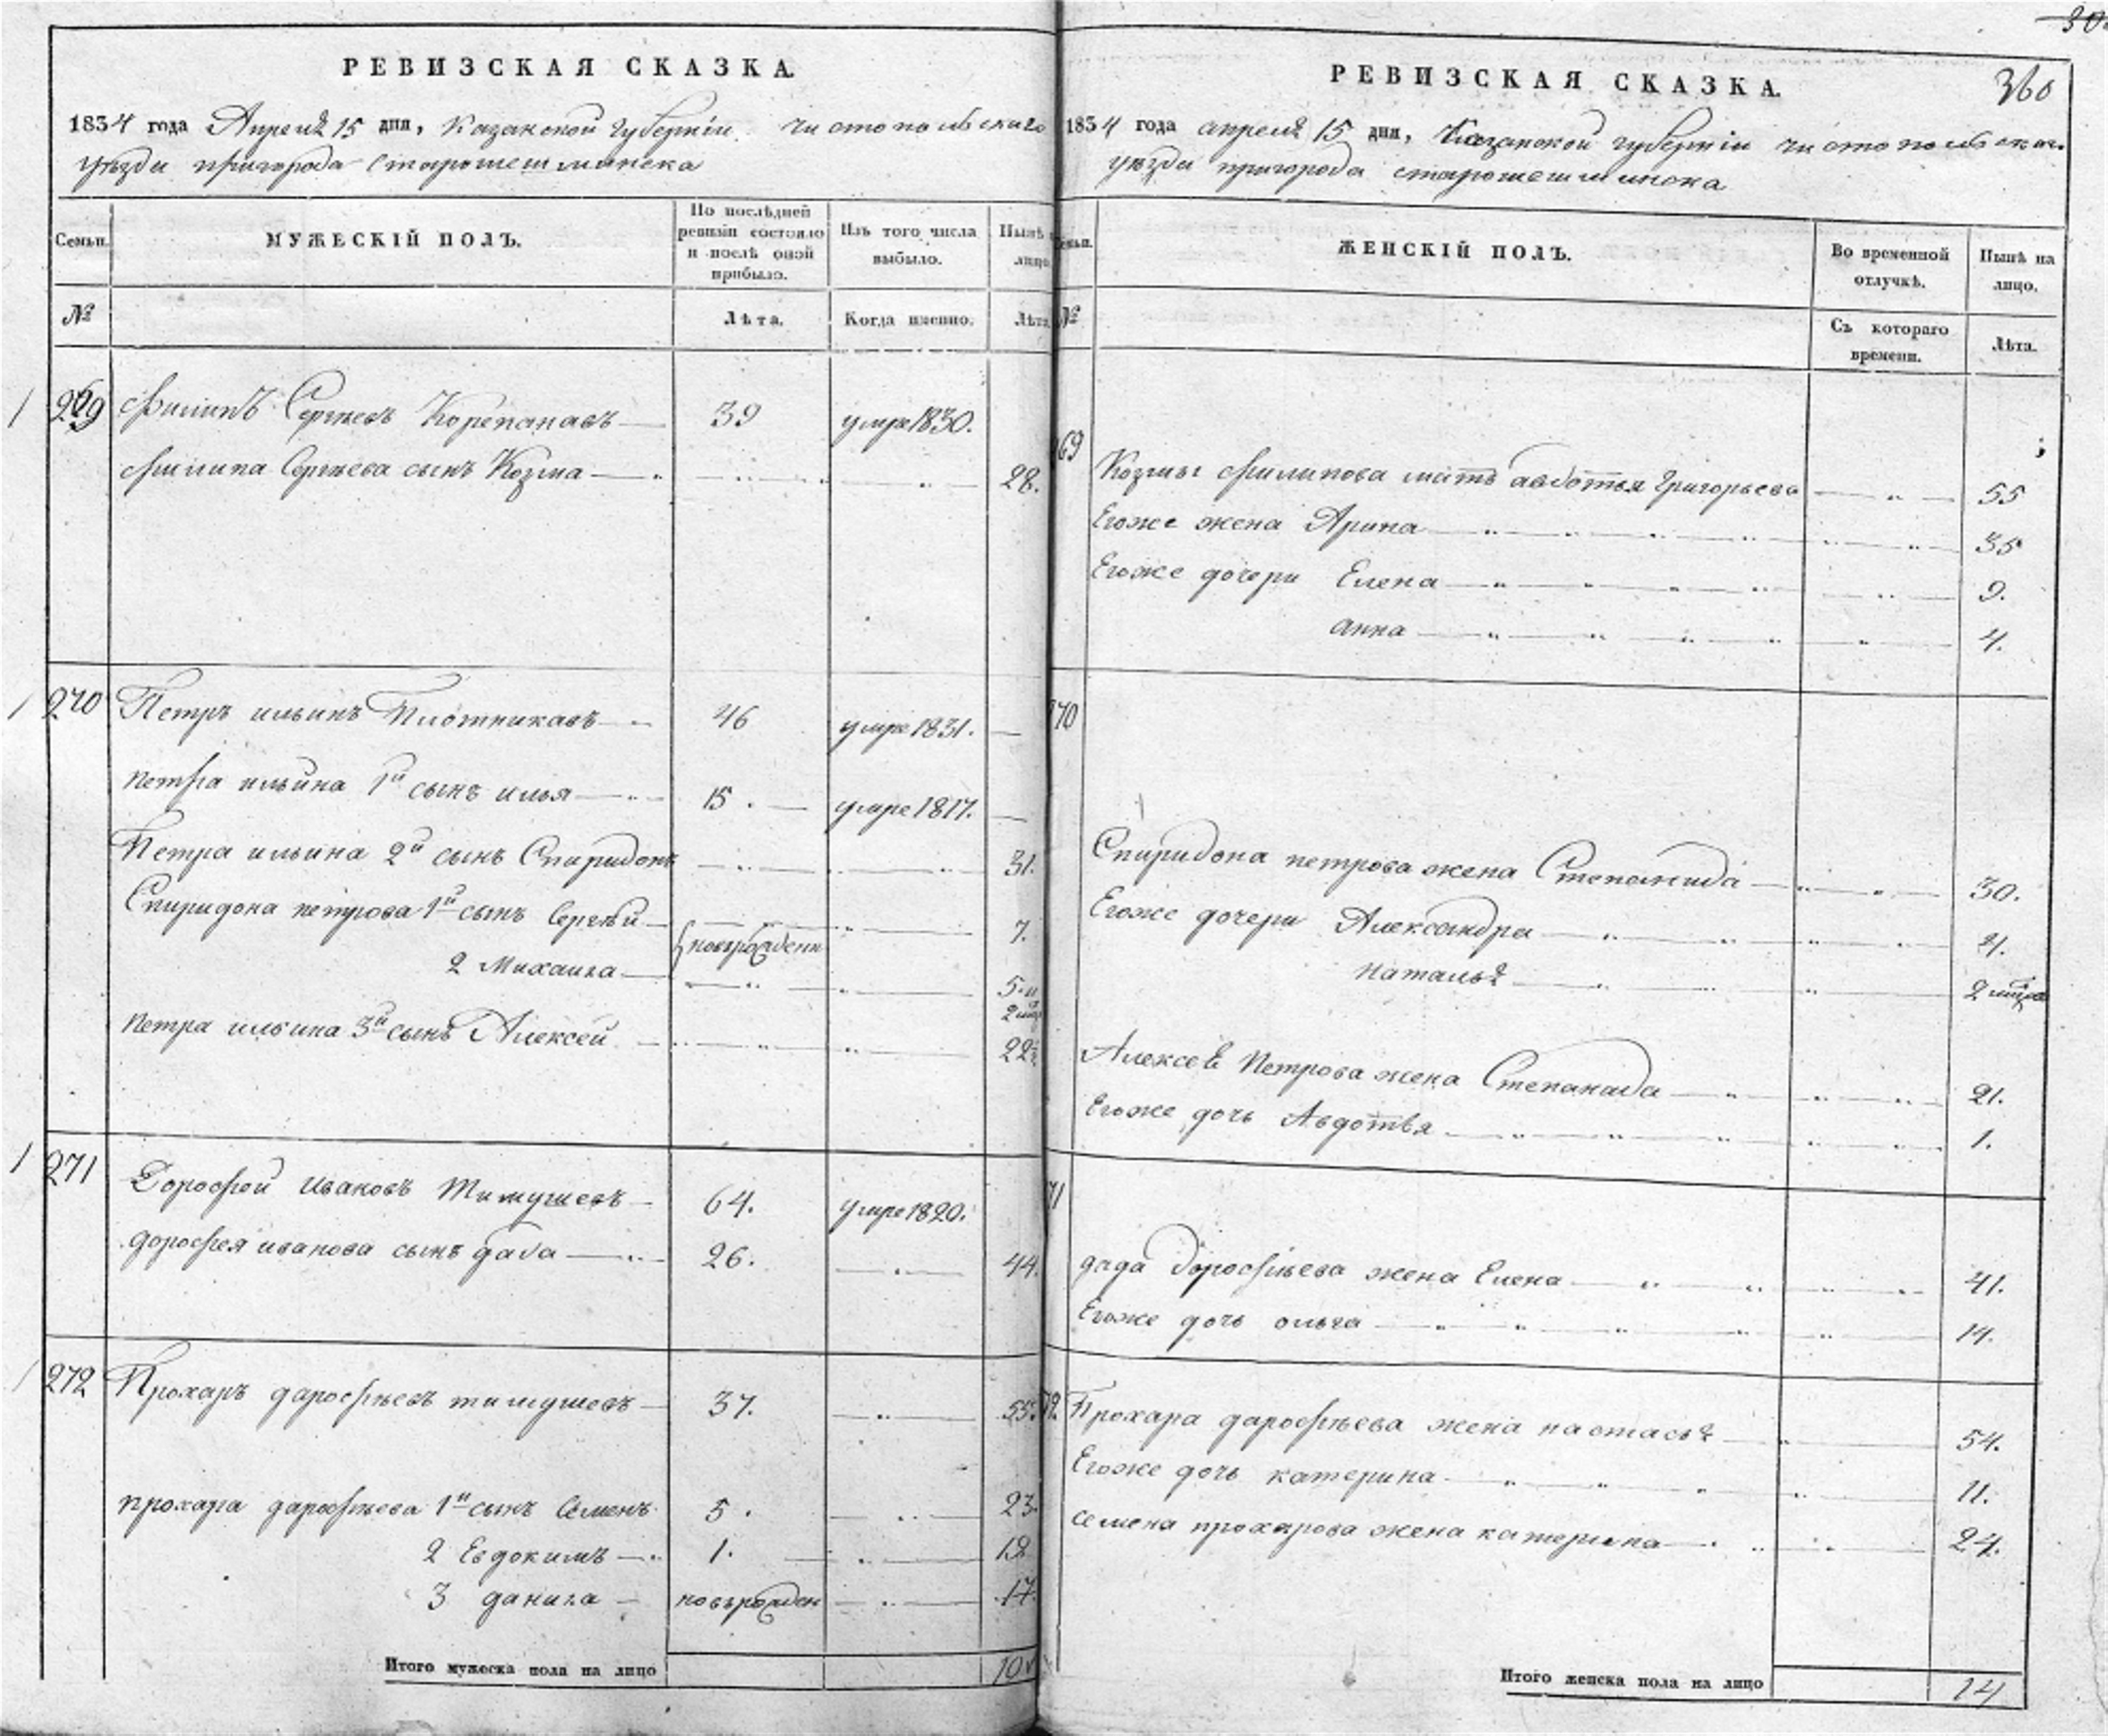 РЕВИЗСКАЯ СКАЗКА.
1834 года Апреля 15 дня, Казанской губернiи Чистопольскаго
уезда пригорода Старошешминска
Семьи.
МУЖЕСКIЙ ПОЛЪ.
По послѣдней ревизiи состояло и послѣ оной прибыло.
Изъ того числа выбыло.
Нынѣ лицо
№
Лѣта.
Когда именно.
Лѣта
1 269 Филипъ Сергѣевъ Корепановъ 39 умре 1830.
Филипа Сергѣева сынъ Козма 28.
1 270 Петръ ильинъ Плотниковъ 46 умре 1831.
петра ильина 1й сынъ илья 15. умре 1817.
Петра ильина 2й сынъ Спиридонъ 31.
Спиридона петрова 1й сынъ Сергѣй 7.
новорожденн
2 Михаила 5.
петра ильина 3й сынъ Алексей 22
1 271 Дорофей Ивановъ Тимушевъ 64. умре 1820.
дорофея иванова сынъ дада 26. 44.
1 272 Прохаръ дарофѣевъ тимушевъ 37. 55.
прохара дарофѣева 1й сынъ Семенъ 5. 23.
2 Евдокимъ 1. 19
3 данила новорожден 17.
Итого мужеска пола на лицо 10
360
РЕВИЗСКАЯ СКАЗКА.
1834 года апреля 15 дня, Казанской губернiи чистопольскаго
уезда пригорода старошешминска
ЖЕНСКIЙ ПОЛЪ.
Во временной отлучкѣ.
Нынѣ на лицо.
№
Съ котораго времени.
Лѣта.
69 Козмы филипова мать авдотья Григорьева 55
Егоже жена Арина 35
Егоже дочери Елена 9.
анна 4.
70
Спиридона петрова жена Степанида 30.
Егоже дочери Александра 4.
наталья 2
Алексея Петрова жена Степанида 21.
Егоже дочь Авдотья 1.
71
дада дорофѣева жена Елена 41.
Егоже дочь ольга 14.
72. Прохара дарофѣева жена настасья 54.
Егоже дочь катерина 11.
семена прохарова жена катерина 24.
Итого женска пола на лицо 14